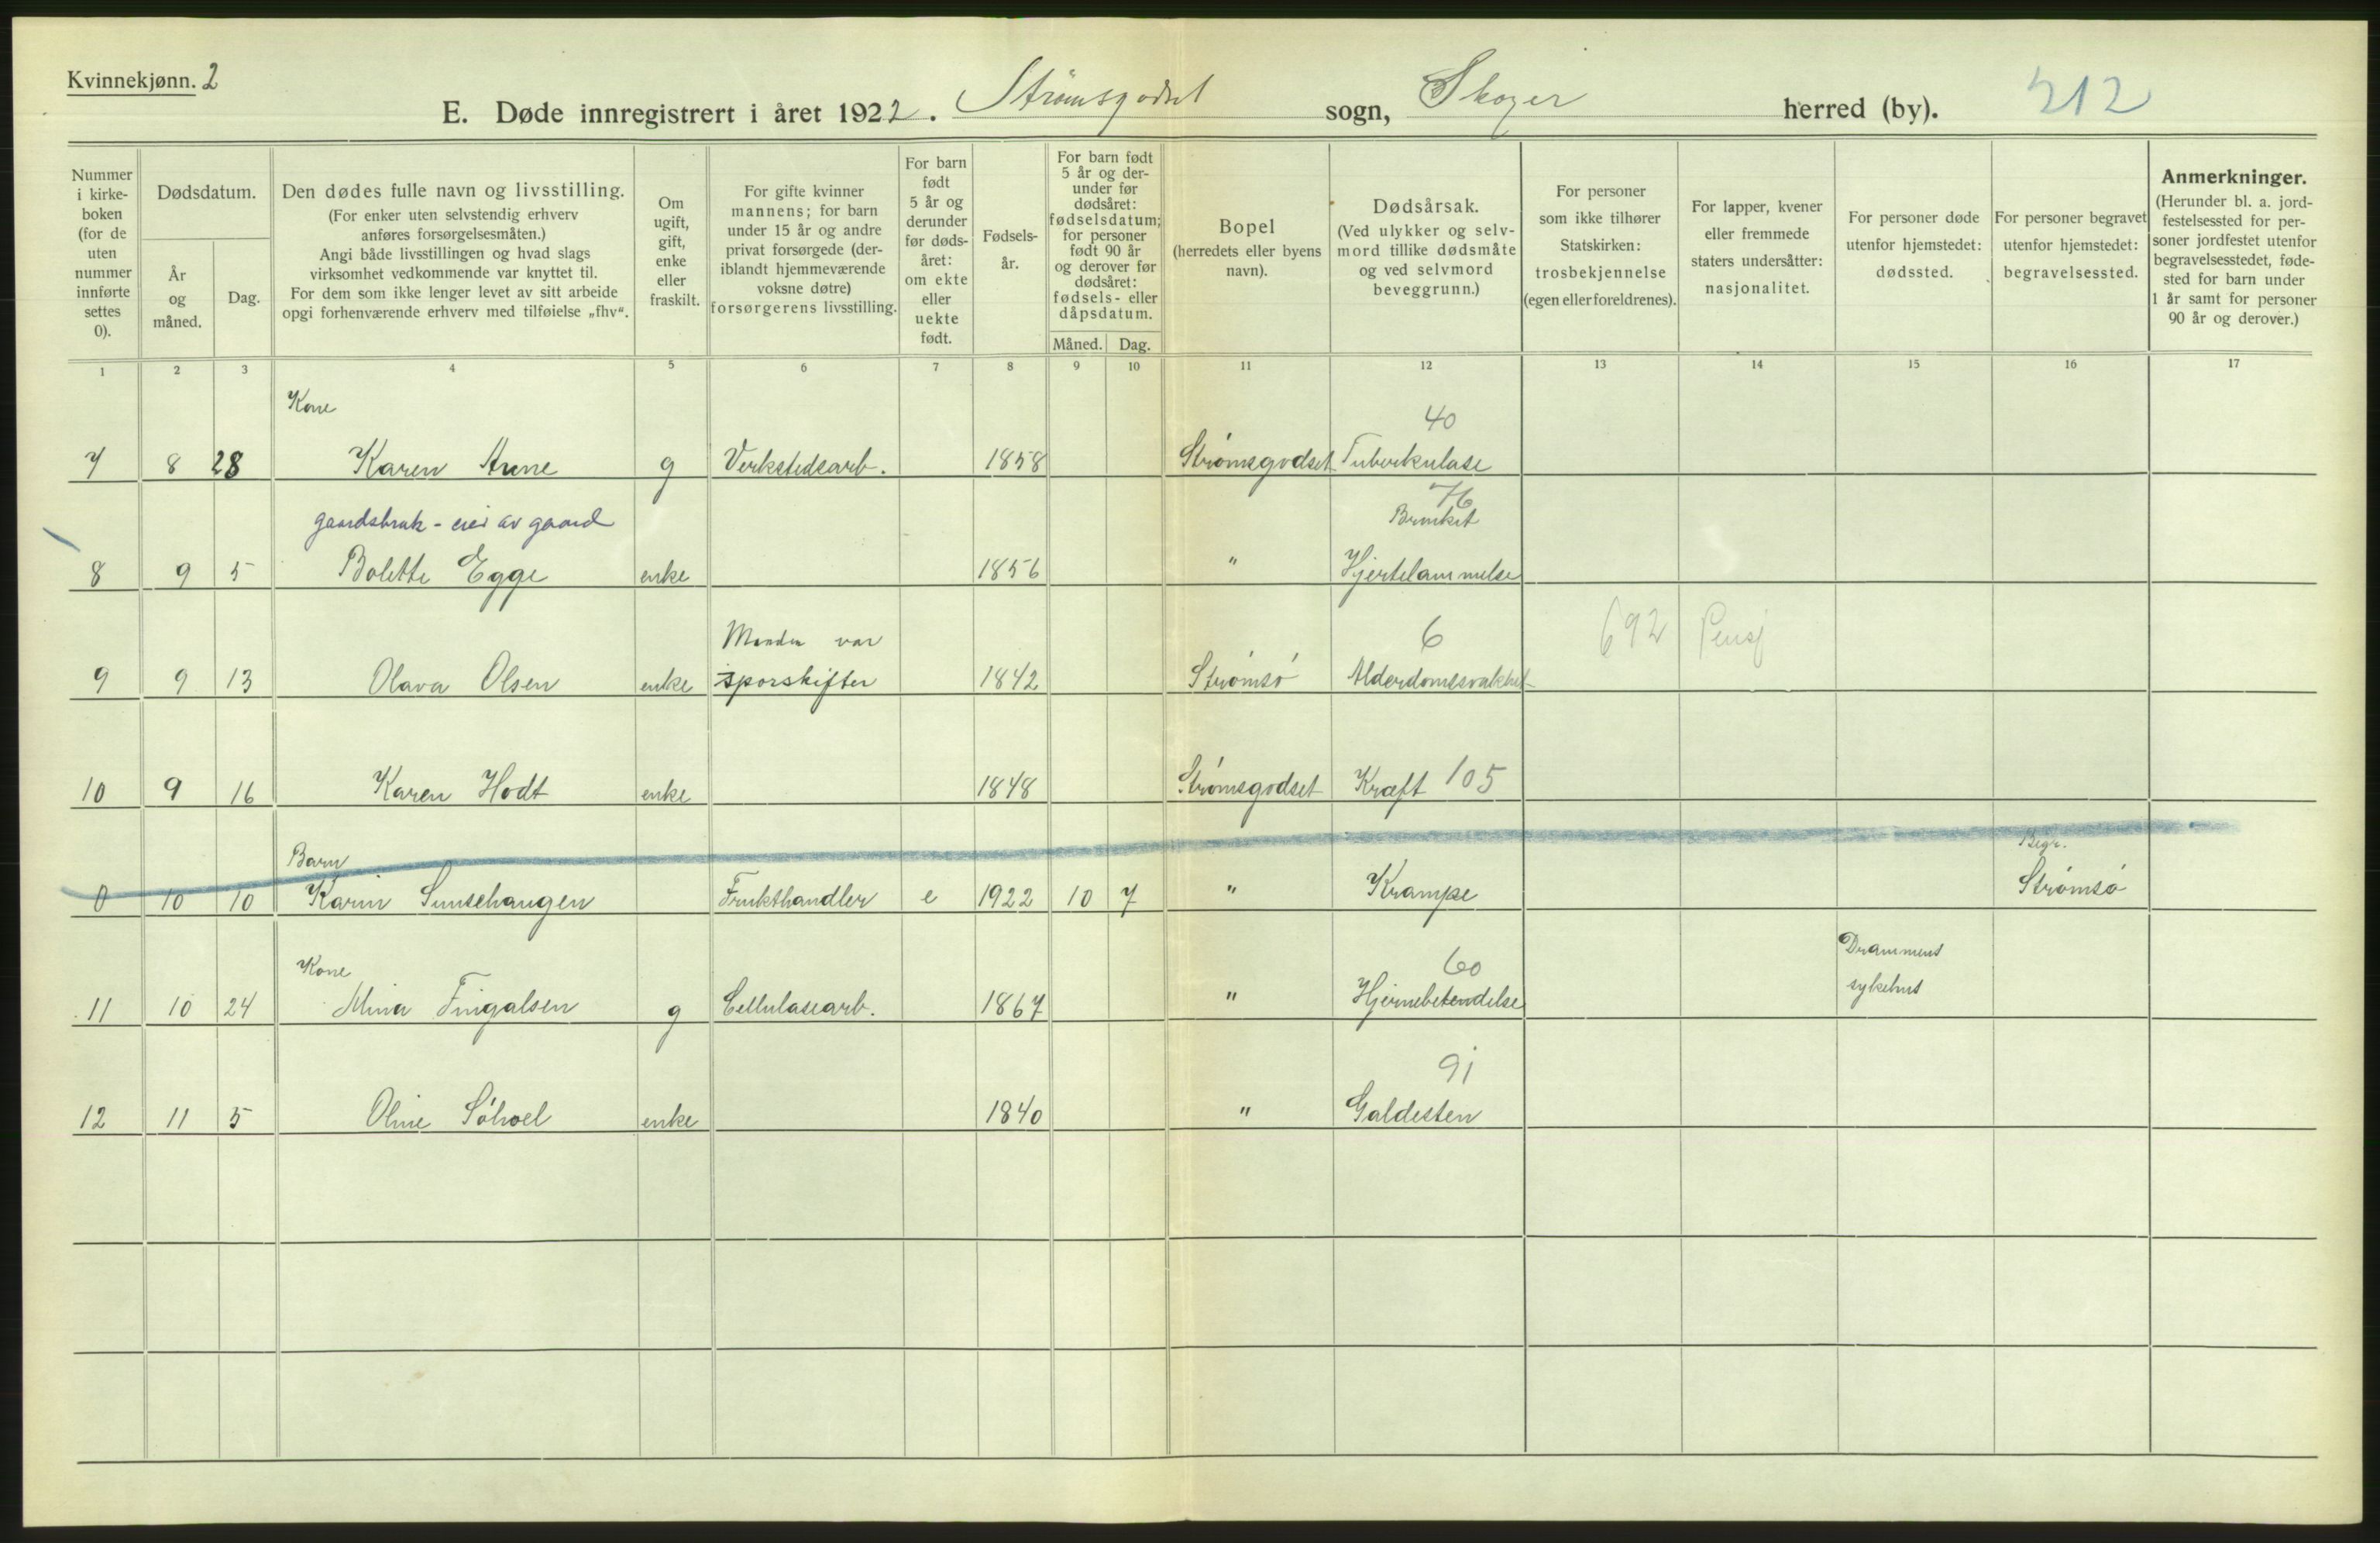 Kvinnekjønn. 2
E. Døde innregistrert i året 1922. Strømsgodset sogn, Skoger herred (by). 212
Nummer i kirkeboken (for de uten nummer innførte settes 0).
Dødsdatum.
År og måned.
Dag.
Den dødes fulle navn og livsstilling.
(For enker uten selvstendig erhverv
anføres forsørgelsesmåten.)
Angi både livsstillingen og hvad slags
virksomhet vedkommende var knyttet til.
For dem som ikke lenger levet av sitt arbeide
opgi forhenværende erhverv med tilføielse „fhv“.
Om
ugift,
gift,
enke
eller
fraskilt.
For gifte kvinner
mannens; for barn
under 15 år og andre
privat forsørgede (der-
iblandt hjemmeværende
voksne døtre)
forsørgerens livsstilling.
For barn
født
5 år og
derunder
før døds-
året:
om ekte
eller
uekte
født.
Fødsels-
år.
For barn født
5 år og der-
under før
dødsåret:
fødselsdatum;
for personer
født 90 år
og derover før
dødsåret:
fødsels- eller
dåpsdatum.
Måned. Dag.
Bopel
(herredets eller byens
navn).
Dødsårsak.
(Ved ulykker og selv-
mord tillike dødsmåte
og ved selvmord
beveggrunn.)
For personer
som ikke tilhører
Statskirken:
trosbekjennelse
(egen eller foreldrenes).
For lapper, kvener
eller fremmede
staters undersåtter:
nasjonalitet.
For personer døde
utenfor hjemstedet:
dødssted.
For personer begravet
utenfor hjemstedet:
begravelsessted.
Anmerkninger.
(Herunder bl. a. jord-
festelsessted for per-
soner jordfestet utenfor
begravelsesstedet, føde-
sted for barn under
1 år samt for personer
90 år og derover.)
1 2 3 4 5 6 7 8 9 10 11 12 13 14 15 16 17
Kone
40
7 8 28 Karen Anne g Verkstedsarb. 1858 Strømsgodset Tuberkulase
76
gaardsbruk - eier av gaard Brukket
8 9 5 Bolette Egge enke 1856 " Hjertelammelse
Manden var 6 692 Pensj
9 9 13 Olava Olsen enke sporskifter 1842 Strømsø Alderdomssvakhet
10 9 16 Karen Hodt enke 1848 Strømsgodset Kræft 105
Barn Begr.
0 10 10 Karin Sunsehaugen Frukthandler e 1922 10 7 " Krampe Strømsø
Kone 60 Drammens
11 10 24 Mina Fingalsen g Cellulasearb. 1867 " Hjernebetendelse sykehus
91
12 11 5 Oline Søhoel enke 1840 " Galdesten